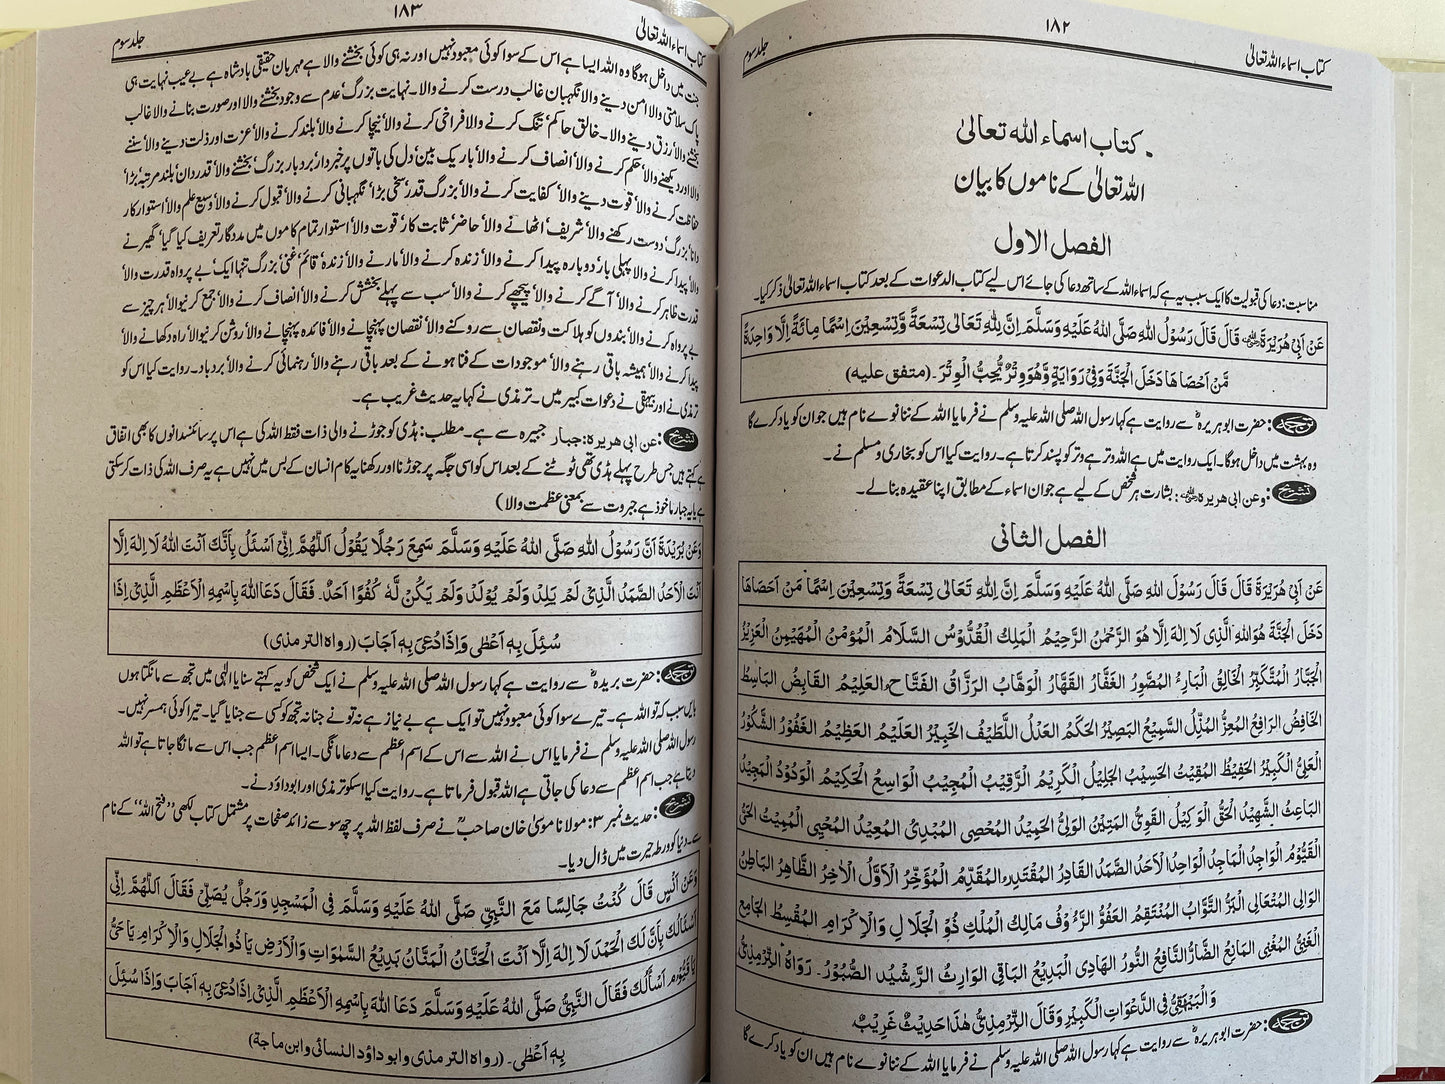 کتاب اسماء اللہ تعالیٰ
۱۸۲
جلد سوم
کتاب اسماء اللہ تعالیٰ
اللہ تعالیٰ کے ناموں کا بیان
الفصل الاول
مناسبت: دعا کی قبولیت کا ایک سبب یہ ہے کہ اسماء اللہ کے ساتھ دعا کی جائے اس لیے کتاب الدعوات کے بعد کتاب اسماء اللہ تعالیٰ ذکر کیا۔
عَنْ اَبِیْ هُرَیْرَةَ قَالَ قَالَ رَسُوْلُ اللهِ صَلَّى اللهُ عَلَيْهِ وَسَلَّمَ اِنَّ لِلّٰهِ تَعَالٰى تِسْعَةً وَّتِسْعِيْنَ اِسْمًا مِائَةً اِلَّا وَاحِدَةً
مَّنْ اَحْصَاهَا دَخَلَ الْجَنَّةَ وَفِیْ رِوَايَةٍ وَّهُوَ وِتْرٌ يُّحِبُّ الْوِتْرَ۔ (متفق عليه)
ترجمہ: حضرت ابوہریرہؓ سے روایت ہے کہا رسول اللہ صلی اللہ علیہ وسلم نے فرمایا اللہ کے ننانوے نام ہیں جو ان کو یاد کرے گا
وہ بہشت میں داخل ہوگا۔ ایک روایت میں ہے اللہ وتر ہے وتر کو پسند کرتا ہے۔ روایت کیا اس کو بخاری و مسلم نے۔
تشریح: وعن ابی هریرة: بشارت ہر شخص کے لیے ہے جو ان اسماء کے مطابق اپنا عقیدہ بنالے۔
الفصل الثانی
عَنْ اَبِیْ هُرَيْرَةَ قَالَ قَالَ رَسُوْلُ اللهِ صَلَّى اللهُ عَلَيْهِ وَسَلَّمَ اِنَّ لِلّٰهِ تَعَالٰى تِسْعَةً وَتِسْعِيْنَ اِسْمًا مَنْ اَحْصَاهَا
دَخَلَ الْجَنَّةَ هُوَ اللهُ الَّذِی لَا اِلٰهَ اِلَّا هُوَ الرَّحْمٰنُ الرَّحِيْمُ الْمَلِكُ الْقُدُّوْسُ السَّلَامُ الْمُؤْمِنُ الْمُهَيْمِنُ الْعَزِيْزُ
الْجَبَّارُ الْمُتَكَبِّرُ الْخَالِقُ الْبَارِءُ الْمُصَوِّرُ الْغَفَّارُ الْقَهَّارُ الْوَهَّابُ الرَّزَّاقُ الْفَتَّاحُ الْعَلِيْمُ الْقَابِضُ الْبَاسِطُ
الْخَافِضُ الرَّافِعُ الْمُعِزُّ الْمُذِلُّ السَّمِيْعُ الْبَصِيْرُ الْحَكَمُ الْعَدْلُ اللَّطِيْفُ الْخَبِيْرُ الْعَلِيْمُ الْعَظِيْمُ الْغَفُوْرُ الشَّكُوْرُ
الْعَلِیُّ الْكَبِيْرُ الْحَفِيْظُ الْمُقِيْتُ الْحَسِيْبُ الْجَلِيْلُ الْكَرِيْمُ الرَّقِيْبُ الْمُجِيْبُ الْوَاسِعُ الْحَكِيْمُ الْوَدُوْدُ الْمَجِيْدُ
الْبَاعِثُ الشَّهِيْدُ الْحَقُّ الْوَكِيْلُ الْقَوِیُّ الْمَتِيْنُ الْوَلِیُّ الْحَمِيْدُ الْمُحْصِی الْمُبْدِئُ الْمُعِيْدُ الْمُحْيِی الْمُمِيْتُ الْحَیُّ
الْقَيُّوْمُ الْوَاجِدُ الْمَاجِدُ الْوَاحِدُ الْاَحَدُ الصَّمَدُ الْقَادِرُ الْمُقْتَدِرُ الْمُقَدِّمُ الْمُؤَخِّرُ الْاَوَّلُ الْاٰخِرُ الظَّاهِرُ الْبَاطِنُ
الْوَالِی الْمُتَعَالِی الْبَرُّ التَّوَّابُ الْمُنْتَقِمُ الْعَفُوُّ الرَّءُوْفُ مَالِكُ الْمُلْكِ ذُو الْجَلَالِ وَالْاِكْرَامِ الْمُقْسِطُ الْجَامِعُ
الْغَنِیُّ الْمُغْنِی الْمَانِعُ الضَّارُّ النَّافِعُ النُّوْرُ الْهَادِی الْبَدِيْعُ الْبَاقِی الْوَارِثُ الرَّشِيْدُ الصَّبُوْرُ۔ رَوَاهُ التِّرْمِذِیُّ
وَالْبَيْهَقِیُّ فِی الدَّعَوَاتِ الْكَبِيْرِ وَقَالَ التِّرْمِذِیُّ هٰذَا حَدِيْثٌ غَرِيْبٌ
ترجمہ: حضرت ابوہریرہؓ سے روایت ہے کہا رسول اللہ صلی اللہ علیہ وسلم نے فرمایا اللہ کے ننانوے نام ہیں ان کو یاد کرے گا
کتاب اسماء اللہ تعالیٰ
۱۸۳
جلد سوم
جنت میں داخل ہوگا وہ اللہ ایسا ہے اس کے سوا کوئی معبود نہیں اور نہ ہی کوئی بخشنے والا ہے مہربان حقیقی بادشاہ ہے بے عیب نہایت ہی
پاک سلامتی والا امن دینے والا نگہبان غالب درست کرنے والا۔ نہایت بزرگ عدم سے وجود بخشنے والا اور صورت بنانے والا غالب
بخشنے والا رزق دینے والا۔ خالق حاکم تنگ کرنے والا فراخی کرنے والا نیچا کرنے والا بلند کرنے والا عزت اور ذلت دینے والا سننے
والا اور دیکھنے والا حکم کرنے والا انصاف کرنے والا باریک بین دل کی باتوں پر خبردار بردبار بزرگ بخشنے والا قدردان بلند مرتبہ بڑا
حفاظت کرنے والا قوت دینے والا کفایت کرنے والا بزرگ قدر سخی بڑا نگہبانی کرنے والا قبول کرنے والا وسیع علم والا استوار کار
دانا بزرگ دوست رکھنے والا شریف اٹھانے والا حاضر ثابت کار قوت والا استوار تمام کاموں میں مددگار تعریف کیا گیا گھیرنے
والا پیدا کرنے والا پہلی بار دوبارہ پیدا کرنے والا زندہ کرنے والا مارنے والا زندہ قائم غنی بزرگ تنہا ایک بے پرواہ قدرت والا
قدرت ظاہر کرنے والا آگے کرنے والا پیچھے کرنے والا سب سے پہلے بخشش کرنے والا انصاف کرنے والا جمع کرنیوالا ہر چیز سے
بے پرواہ کرنے والا بندوں کو ہلاکت ونقصان سے روکنے والا نقصان پہنچانے والا فائدہ پہنچانے والا روشن کرنیوالا راہ دکھانے والا
پیدا کرنے والا ہمیشہ باقی رہنے والا موجودات کے فنا ہونے کے بعد باقی رہنے والا رہنمائی کرنے والا بردباد۔ روایت کیا اس کو
ترمذی نے اور بیہقی نے دعوات کبیر میں۔ ترمذی نے کہا یہ حدیث غریب ہے۔
تشریح: عن ابی هریرة: جبار جبیرہ سے ہے۔ مطلب: ہڈی کو جوڑنے والی ذات فقط اللہ کی ہے اس پر سائنسدانوں کا بھی اتفاق
ہے کہتے ہیں جس طرح پہلے ہڈی تھی ٹوٹنے کے بعد اس کو اسی جگہ پر جوڑنا اور رکھنا یہ کام انسان کے بس میں نہیں ہے یہ صرف اللہ کی ذات کرسکتی
ہے یا یہ جبار ماخوذ ہے جبروت سے بمعنی عظمت والا)
وَعَنْ بُرَيْدَةَ اَنَّ رَسُوْلَ اللهِ صَلَّى اللهُ عَلَيْهِ وَسَلَّمَ سَمِعَ رَجُلًا يَقُوْلُ اَللّٰهُمَّ اِنِّیْ اَسْئَلُ بِاَنَّكَ اَنْتَ اللهُ لَا اِلٰهَ اِلَّا
اَنْتَ الْاَحَدُ الصَّمَدُ الَّذِیْ لَمْ يَلِدْ وَلَمْ يُوْلَدْ وَلَمْ يَكُنْ لَّهٗ كُفُوًا اَحَدٌ۔ فَقَالَ دَعَا اللهَ بِاسْمِهِ الْاَعْظَمِ الَّذِیْ اِذَا
سُئِلَ بِهٖ اَعْطٰى وَاِذَا دُعِیَ بِهٖ اَجَابَ (رواه الترمذی)
ترجمہ: حضرت بریدہؓ سے روایت ہے کہا رسول اللہ صلی اللہ علیہ وسلم نے ایک شخص کو یہ کہتے سنایا الٰہی میں تجھ سے مانگتا ہوں
بایں سبب کہ تو اللہ ہے۔ تیرے سوا کوئی معبود نہیں تو ایک ہے بے نیاز ہے نہ تو نے جنا نہ تجھ کو کسی سے جنایا گیا۔ تیرا کوئی ہمسر نہیں۔
رسول اللہ صلی اللہ علیہ وسلم نے فرمایا اس نے اللہ سے اس کے اسم اعظم سے دعا مانگی۔ ایسا اسم اعظم جب اس سے مانگا جاتا ہے تو اللہ
دیتا ہے جب اسم اعظم سے دعا کی جاتی ہے اللہ قبول فرماتا ہے۔ روایت کیا اسکو ترمذی اور ابوداؤد نے۔
تشریح: حدیث نمبر ۳: مولانا موسیٰ خان صاحبؒ نے صرف لفظ اللہ پر چھ سو سے زائد صفحات پر مشتمل کتاب لکھی ”فتح اللہ“ کے نام
سے۔ دنیا کو ورطہ حیرت میں ڈال دیا۔
وَعَنْ اَنَسٍ قَالَ كُنْتُ جَالِسًا مَعَ النَّبِیِّ صَلَّى اللهُ عَلَيْهِ وَسَلَّمَ فِی الْمَسْجِدِ وَرَجُلٌ يُصَلِّیْ فَقَالَ اَللّٰهُمَّ اِنِّیْ
اَسْئَالُكَ بِاَنَّ لَكَ الْحَمْدَ لَا اِلٰهَ اِلَّا اَنْتَ الْحَنَّانُ الْمَنَّانُ بَدِيْعُ السَّمٰوَاتِ وَالْاَرْضِ يَا ذُو الْجَلَالِ وَالْاِكْرَامِ يَا حَیُّ
يَا قَيُّوْمُ اَسْأَلُكَ فَقَالَ النَّبِیُّ صَلَّى اللهُ عَلَيْهِ وَسَلَّمَ دَعَا اللهَ بِاسْمِهِ الْاَعْظَمِ الَّذِیْ اِذَا دُعِیَ بِهٖ اَجَابَ وَاِذَا سُئِلَ
بِهٖ اَعْطٰى۔ (رواه الترمذی وابو داؤد النسائی وابن ماجة)